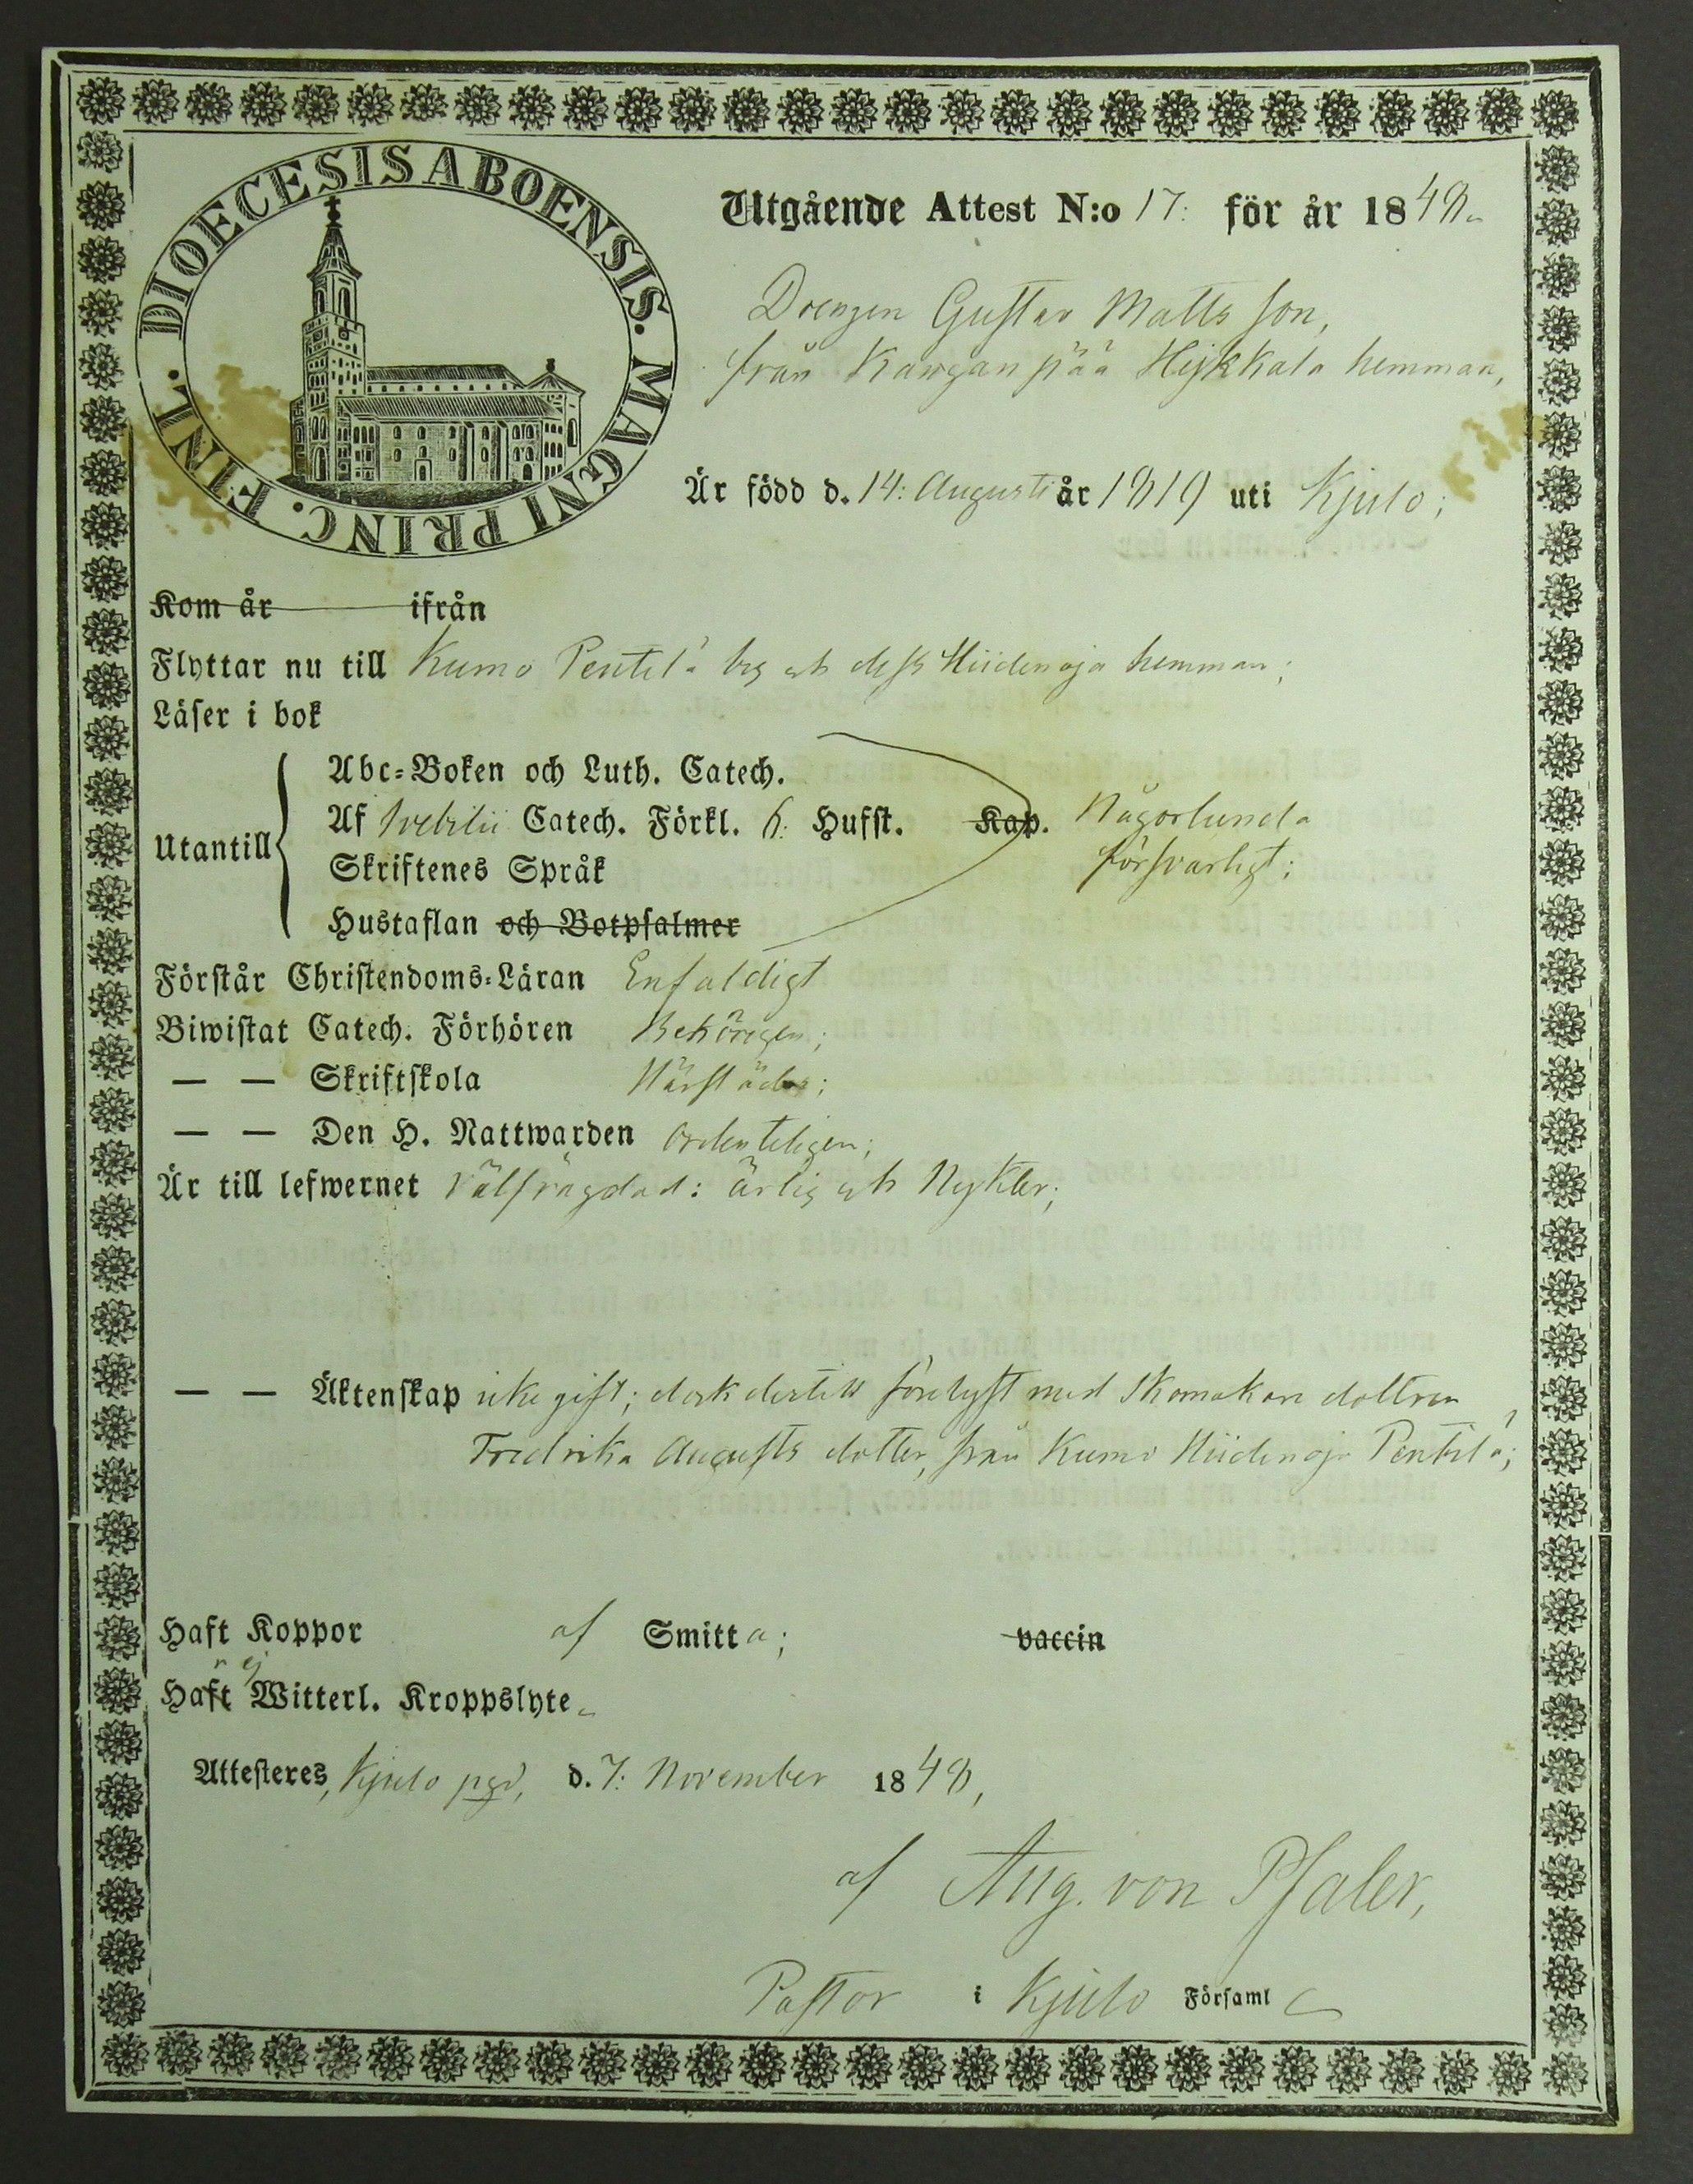 DIOECESIS ABOENSIS. MAGNI PRINC. FINL.
Utgående Attest N:o 17: för år 1848.
Drengen Gustav Matts son,
från Kawganpää Hejkkala hemman,
Är född d. 14: Augusti år 1819 uti Kjulo;
Kom år ifrån
Flyttar nu till Kumo Pentilä by och dess Hiidenoja hemman;
Läser i bok
Utantill
Abc-Boken och Luth. Catech.
Af Svebilii Catech. Förkl. 6: Hufst. Kap. Någorlunda
Skriftenes Språk försvarligt;
Hustaflan och Botpsalmer
Förstår Christendoms-Läran Enfaldigt
Biwistat Catech. Förhören Behörigen;
— — Skriftskola Härstädes;
— — Den H. Nattwarden ordenteligen;
Är till lefwernet Välfrägdad: ärlig och Nykter;
— — Äktenskap icke gift; dock dertill förelyst med Skomakare dottren
Fredrika Augusts dotter, från Kumo Hiidenoja Pentilä;
Haft Koppor af Smitta; vaccin
Har ej Witterl. Kroppslyte.
Attesteres, Kjulo pgd, d. 7: November 1848,
af Aug. von Pfaler,
Pastor i Kjulo Församl